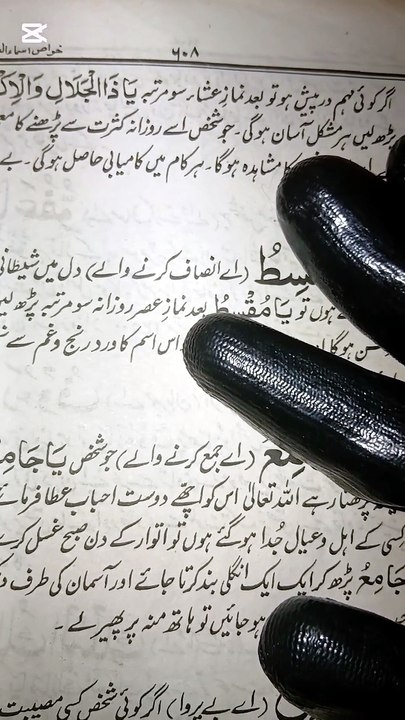 CapCut
خواص اسماء ال
۶۰۸
اگر کوئی مہم در پیش ہو تو بعد نمازِ عشاء سو مرتبہ یَا ذَا الْجَلَالِ وَالْاِکْ
پڑھ لیں ہر مشکل آسان ہوگی۔ جو شخص اسے روزانہ کثرت سے پڑھنے کا مع
کا مشاہدہ ہوگا۔ ہر کام میں کامیابی حاصل ہوگی۔ بے
(اے انصاف کرنے والے) دل میں شیطانی
ہوں تو یَا مُقْسِطُ بعد نمازِ عصر روزانہ سو مرتبہ پڑھ لیں
ہوگا اس اسم کا ورد رنج و غم سے
(اے جمع کرنے والے) جو شخص یَا جَامِعُ
پڑھتا رہے اللہ تعالیٰ اس کو اچھے دوست احباب عطا فرمائے
کسی کے اہل و عیال جُدا ہو گئے ہوں تو اتوار کے دن صبح غسل کرے
جَامِعُ پڑھ کر ایک ایک انگلی بند کرتا جائے اور آسمان کی طرف
ہو جائیں تو ہاتھ منہ پر پھیر لے۔
(اے بے پروا) اگر کوئی شخص کسی مصیبت